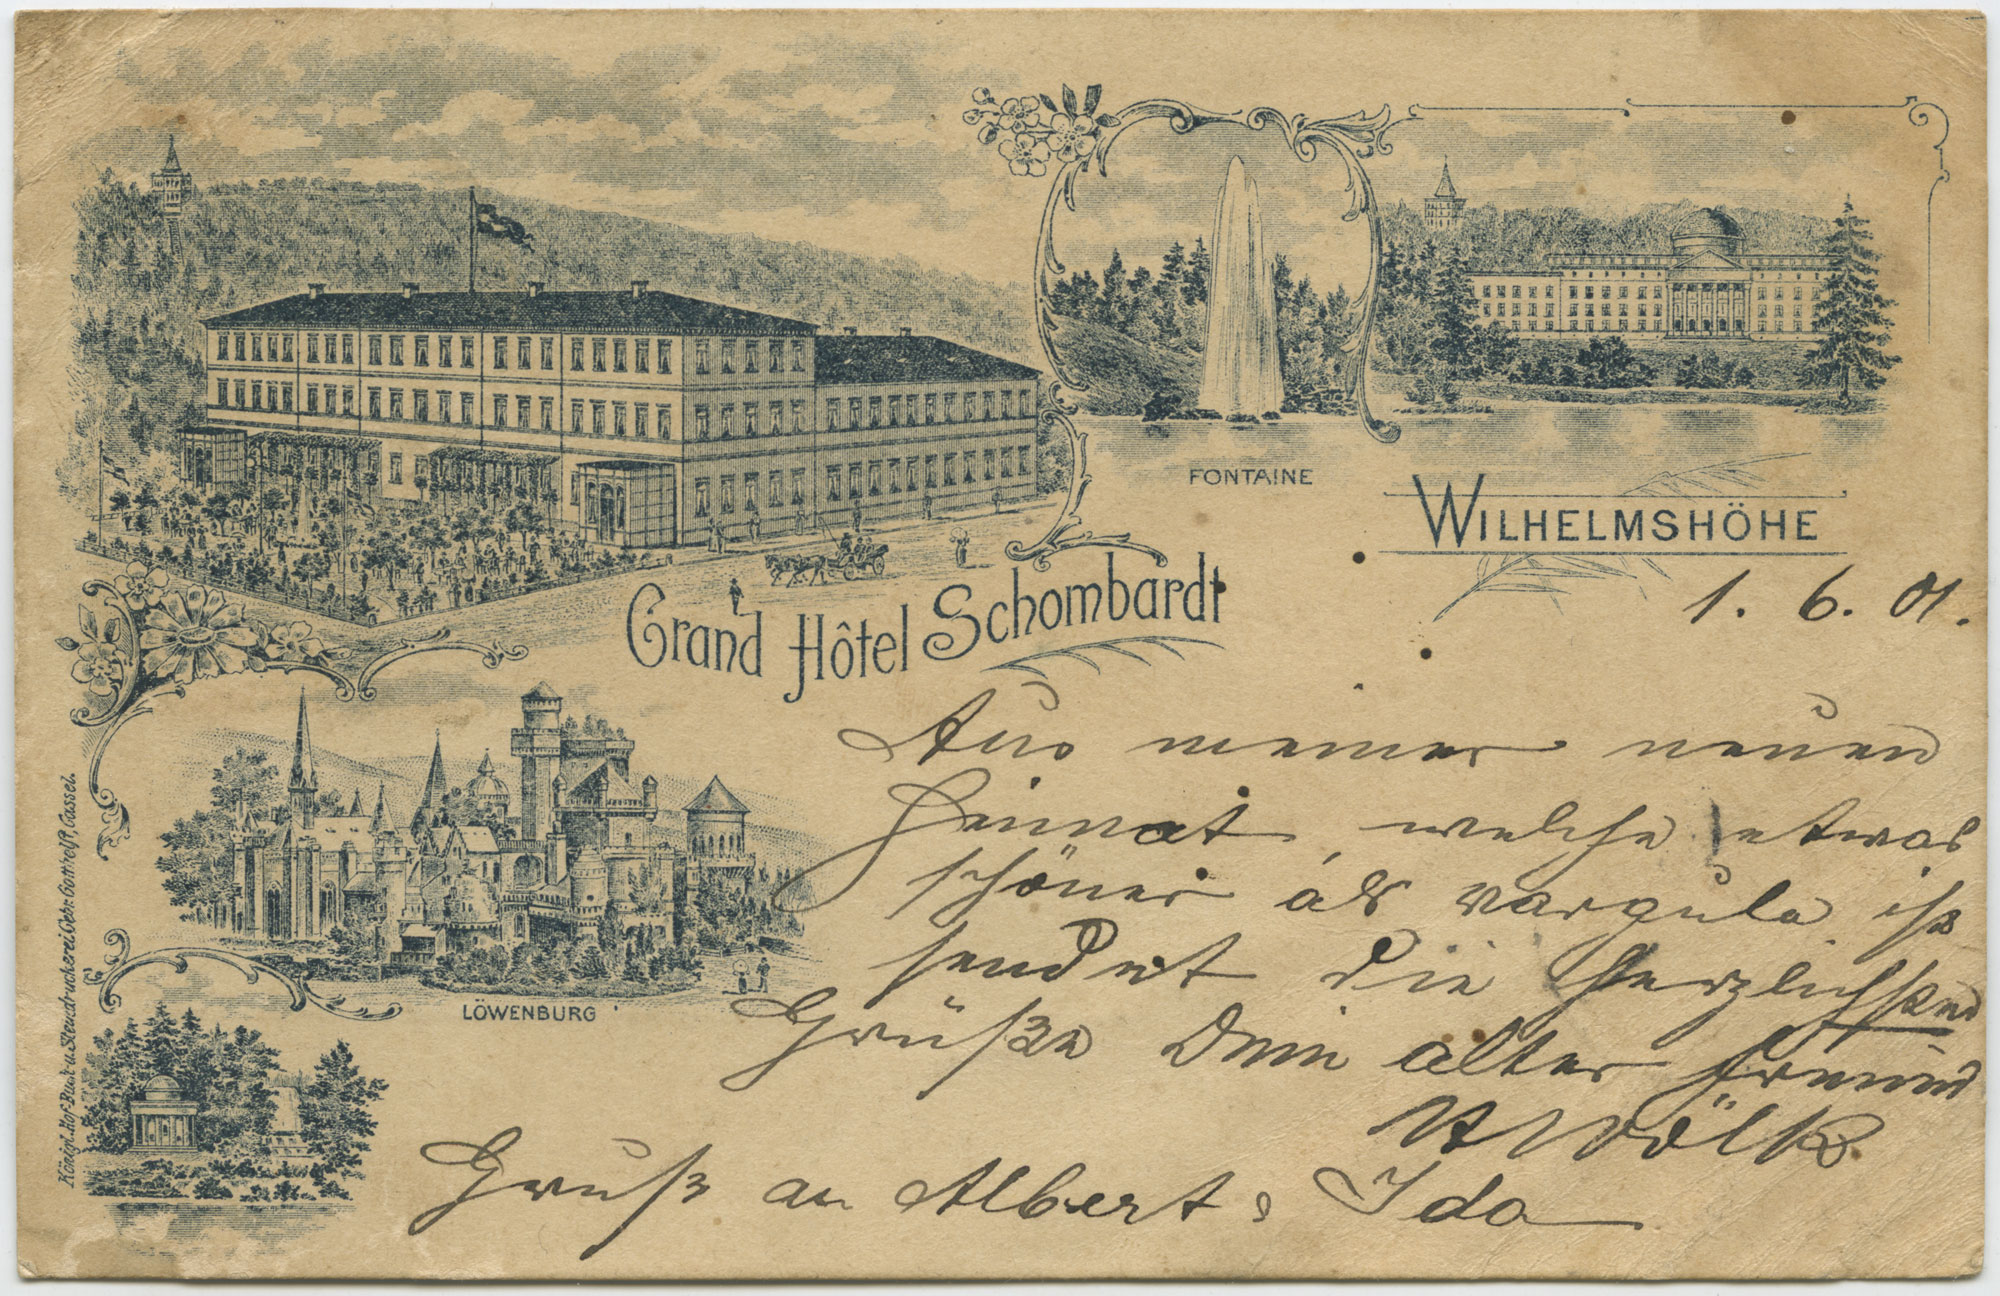 FONTAINE
WILHELMSHÖHE
Grand Hôtel Schombardt
LÖWENBURG
Königl. Hof-Buch u. Steindruckerei Gebr. Gotthelft, Cassel.
1. 6. 01.
Aus meiner neuen
Heimat, welche etwas
schöner als Vargula ist
sendet die herzlichsten
Grüße Dein alter Freund
Wölk
Gruß an Albert & Ida